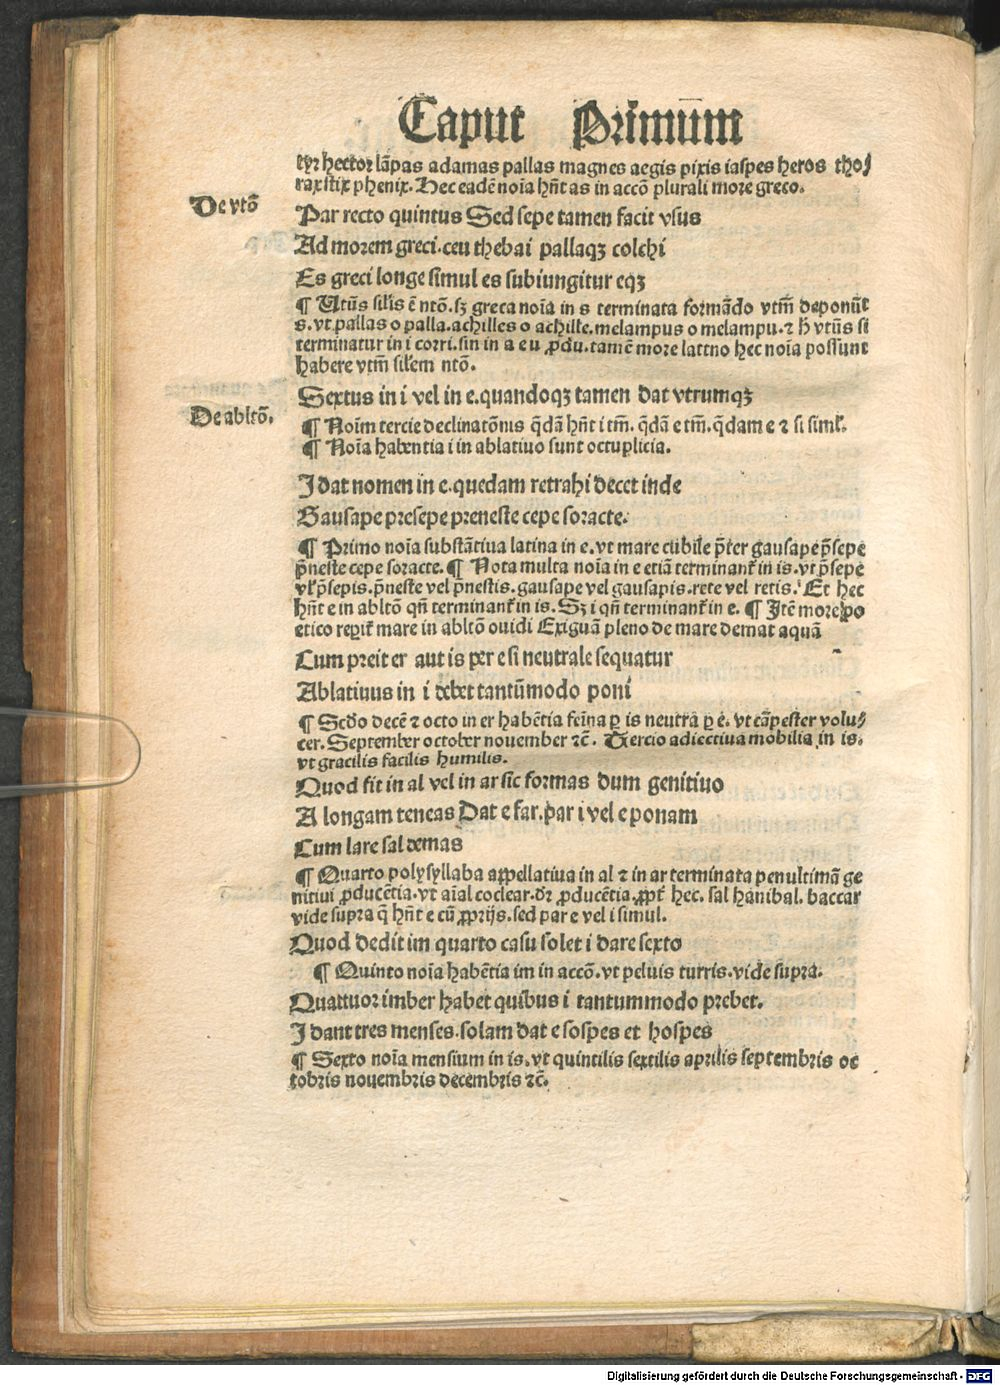 Caput Primum
tyr hector lāpas adamas pallas magnes aegis pixis iaspes heros tho⸗
rax stix phenix. Hec eadē noīa hn̄t as in accō plurali more greco.
De vtō
Par recto quintus Sed sepe tamen facit vsus
Ad morem greci. ceu thebai pallaqꝫ colchi
Es greci longe simul es subiungitur eqꝫ
¶ Utūs sil̄is ē ntō. sꝫ greca noīa in s terminata formādo vtm̄ deponūt
s. vt pallas o palla. achilles o achille. melampus o melampu. ⁊ h̄ vtūs si
terminatur in i corri. sin in a e u ꝓdu. tamē more lattno hec noīa possunt
habere vtm̄ sil̄em ntō.
Sextus in i vel in e. quandoqꝫ tamen dat vtrumqꝫ
De abltō.
¶ Noīm tercie declinatōnis q̄dā hn̄t i tm̄. q̄dā e tm̄. q̄dam e ⁊ i simĺ.
¶ Noīa habentia i in ablatiuo sunt octuplicia.
I dat nomen in e. quedam retrahi decet inde
Gausape presepe preneste cepe soracte.
¶ Primo noīa substātiua latina in e. vt mare cubile p̄ter gausape p̄sepe
p̄neste cepe soracte. ¶ Nota multa noīa in e etiā terminant᷑ in is. vt p̄sepe
vl̓ p̄sepis. p̄neste vel p̄nestis. gausape vel gausapis. rete vel retis. Et hec
hn̄t e in abltō qn̄ terminant᷑ in is. Sꝫ i qn̄ terminant᷑ in e. ¶ Itē more po
etico reꝑit᷑ mare in abltō ouidi Exiguā pleno de mare demat aquā
Cum preit er aut is per e si neutrale sequatur
Ablatiuus in i debet tantūmodo poni
¶ Scdo decē ⁊ octo in er habētia fēīna ꝑ is neutra ꝑ e. vt cāpester volu⸗
cer. September october nouember ⁊c̄. Tercio adiectiua mobilia in is.
vt gracilis facilis humilis.
Quod fit in al vel in ar sic formas dum genitiuo
A longam teneas Dat e far. par i vel e ponam
Cum lare sal demas
¶ Quarto polysyllaba appellatiua in al ⁊ in ar terminata penultimā ge
nitiui ꝓducētia. vt aīal coclear. dr̄ ꝓducētia. ꝓpt᷑ hec. sal hanibal. baccar
vide supra q̄ hn̄t e cū ꝓprijs. sed par e vel i simul.
Quod dedit im quarto casu solet i dare sexto
¶ Quinto noīa habētia im in accō. vt peluis turris. vide supra.
Quattuor imber habet quibus i tantummodo prebet.
I dant tres menses. solam dat e sospes et hospes
¶ Sexto noīa mensium in is. vt quintilis sextilis aprilis septembris oc
tobris nouembris decembris ⁊c̄.
Digitalisierung gefördert durch die Deutsche Forschungsgemeinschaft - DFG